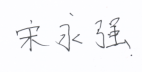 宋永强